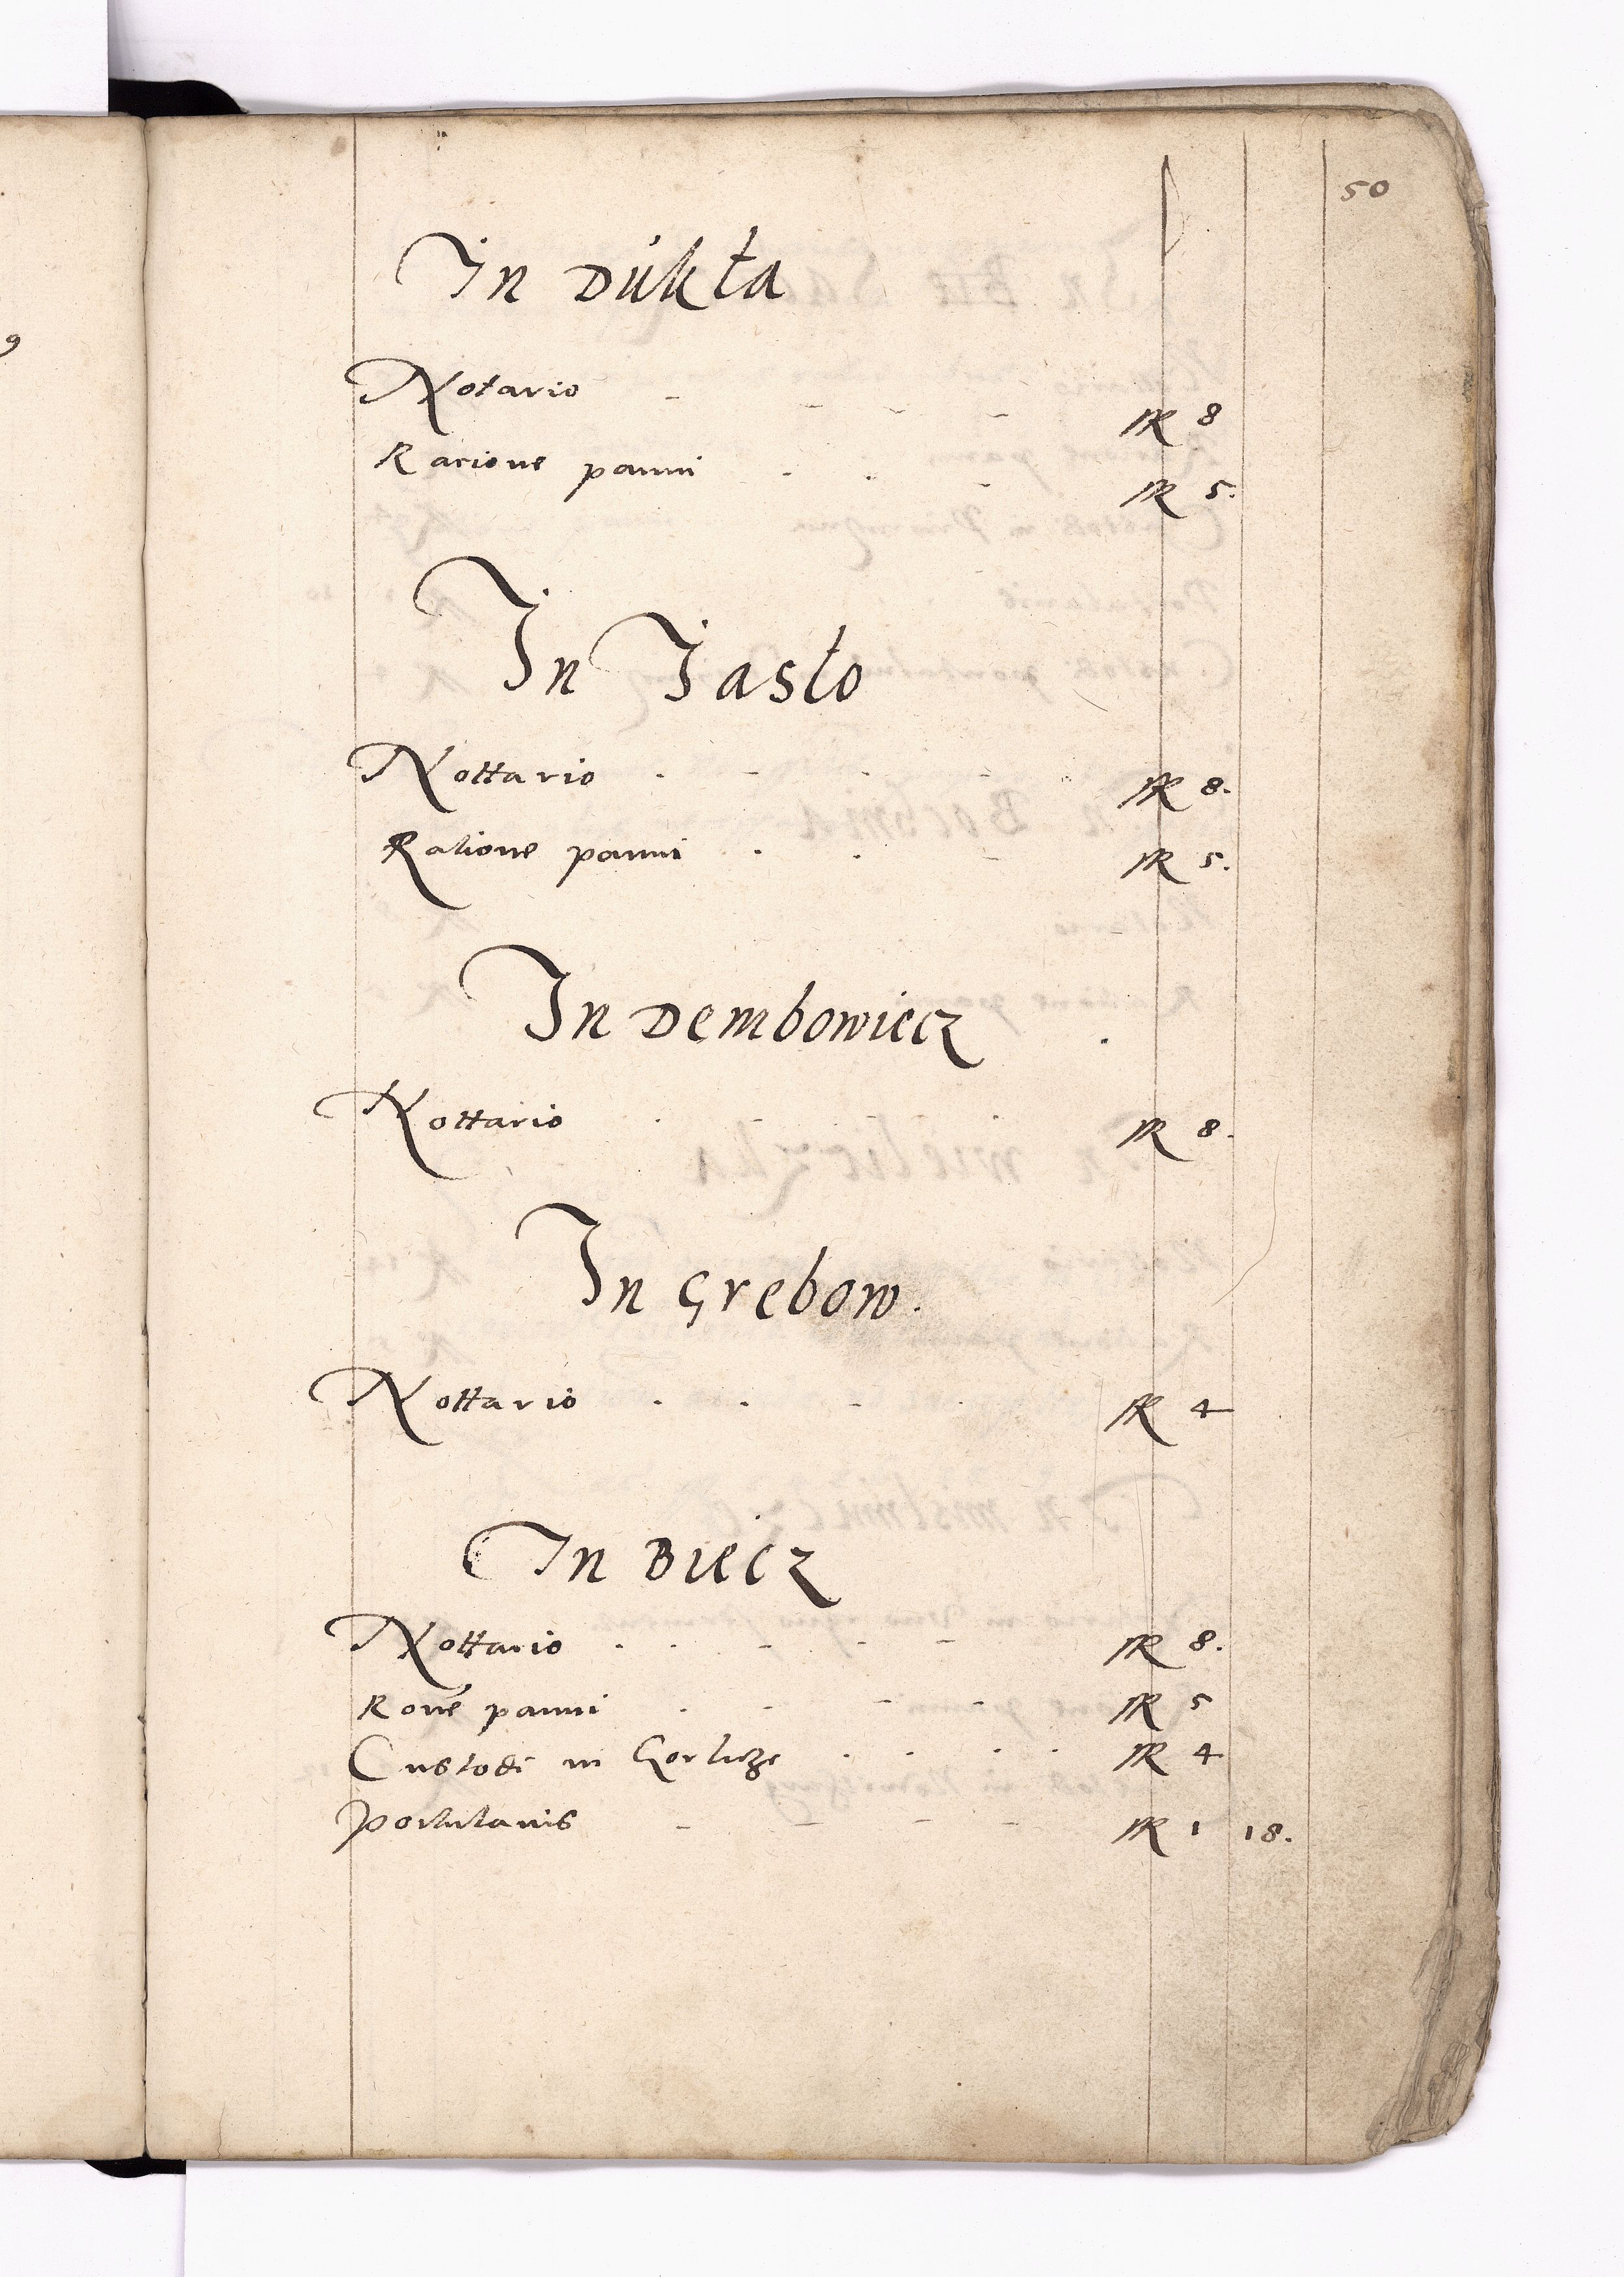 50
In Dukła
Notario - - - - - M 8
Racione panni - . - M 5.
In Jasło
Nottario . - . - M 8.
Ratione panni . . - M 5.
In Dembowiecz
Nottario . - . M 8.
In Grebow.
Nottario . . - . M 4
In Biecz
Nottario . . - - - M 8.
Rone panni . - - - M 5
Custodi in Gorlicze . . . . M 4
Portulanis - - - - M 1 18.